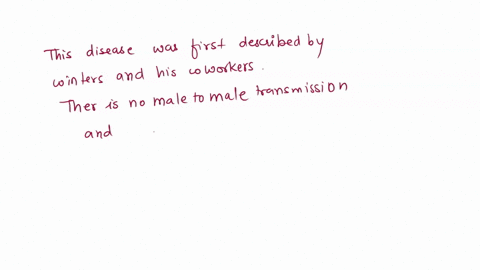 This disease was first described by
winters and his coworkers.
Ther is no male to male transmission
and